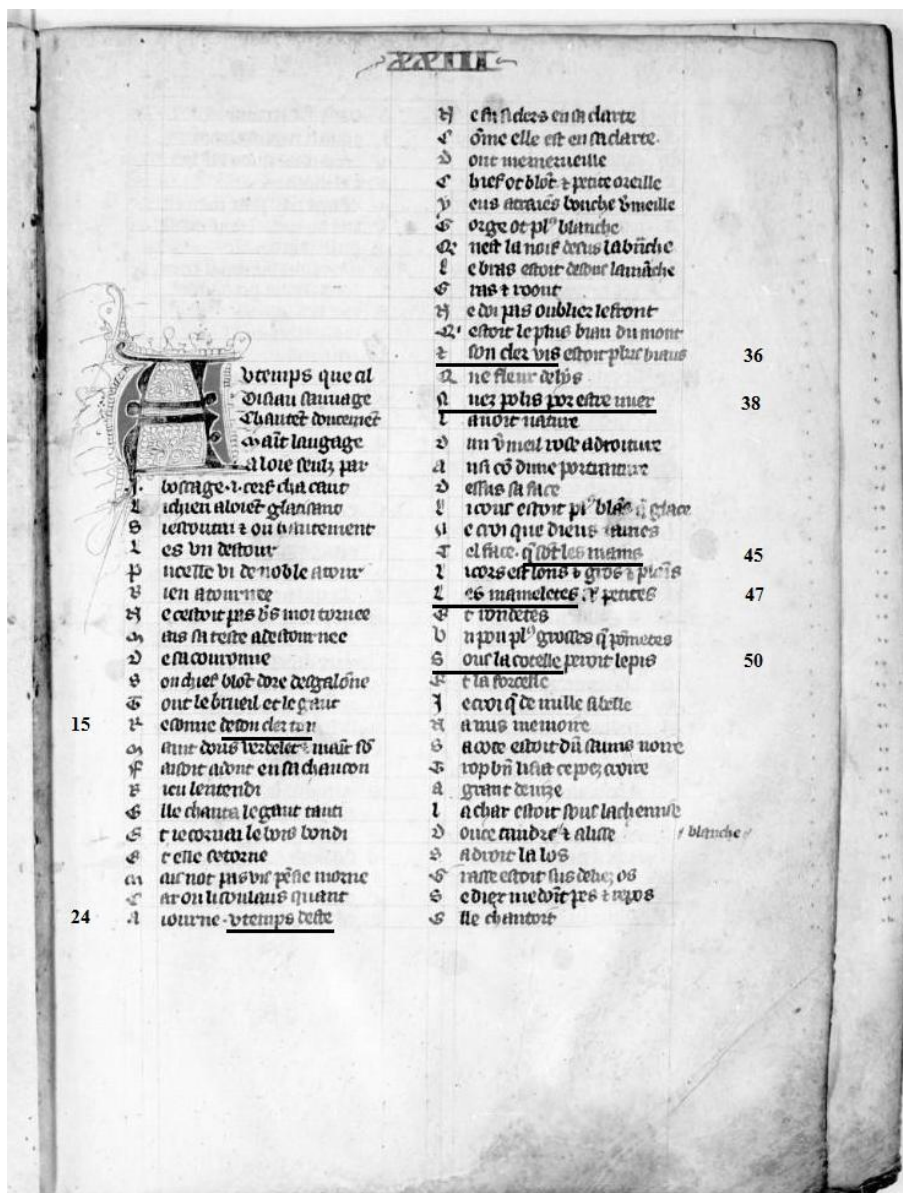 XXIIII
Vtemps que al
Disiau sauuage
Chantẽt doucemẽt
maĩt laugage
Aloie seulz par
boscage .i. cerf chacant
chien aloiet glatisant
S iescoutai τ oi hautement
L es vn destour
P ucelle vi de noble atour
B ien atournee
N e cestoit pas ṽs moi tornee
M ais sa teste a destournee
D e sa couronne
S on chief blõt dore desgalõne
T out le brueil et le gaut
15
R esonne de son cler ton
M aint dous verbelet maĩt sõ
F aisoit adont en sa chancon
B ien lentendi
E lle chanta le gaut tanti
E t ie cornai le bois bondi
E t elle se torne
M ais not pas vis pẽsif morne
C ar on li soulaus quant
24
A iourne . v temps deste
N e fu si ders en sa clarte
C õme elle est en sa clarte.
D ont me merueille
C hief ot blõt τ petite oreille
bouche ṽmeille
G orge ot plꝰ blanche
nest la noif desus la brãche
L e bras estoit desouz la mãche
G ras τ roont
N e doi pas oublier le front
Q' estoit le plus biau du mont
τ son cler vis estoit plus biaus
36
Q ne fleur de lys
N uez polis por estre
38
L auoit nature
D un ṽmeil rose a droiture
A nsi cõ dune portraiture
D essus sa face
L i cour estoit plꝰ blãs q̃ glace
N e croi que dieus iames
T el face . q̃ sõt les mains
45
L i cors est lons τ gros τ plaĩs
L es mameletes petites
47
E t rondetes
V n pou plꝰ grosses q̃ põmetes
S ouz la cotelle peroit le pis
50
E t la forcelle
I e croi q̃ de nulle si belle
N auus memoire
S a cote estoit dũ sains noire
T rop bñ li sist ce poez croire
A grant deuize
L a char estoit souz la chemise
D ouce tandre τ alise
/ blanche /
S adroit la los
G rasse estoit sus dehez os
S e diex me doĩt pes τ repos
E lle chantoit